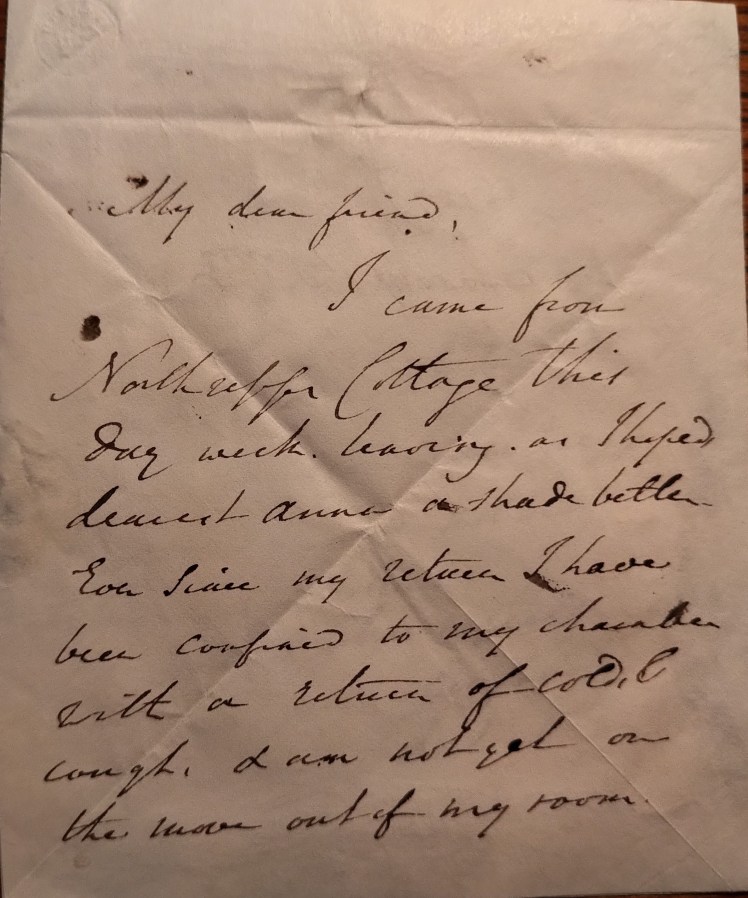 My dear friend,
I came from
Northrepps Cottage this
day week. leaving. as I hoped
dearest Anna a shade better
Ever since my return I have
been confined to my chamber
with a return of cold, &
cough. & am not yet on
the move out of my room.